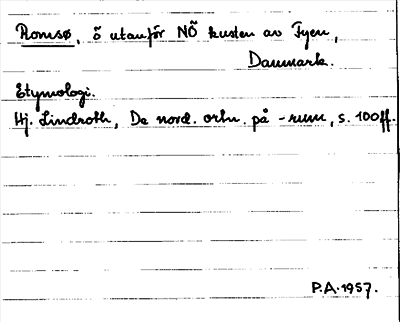 Romsø, ö utanför NÖ kusten av Fyen,
Danmark.
Etymologi.
Hj. Lindroth, De nord. ortn. på -rum, s. 100ff.
P.A. 1957.